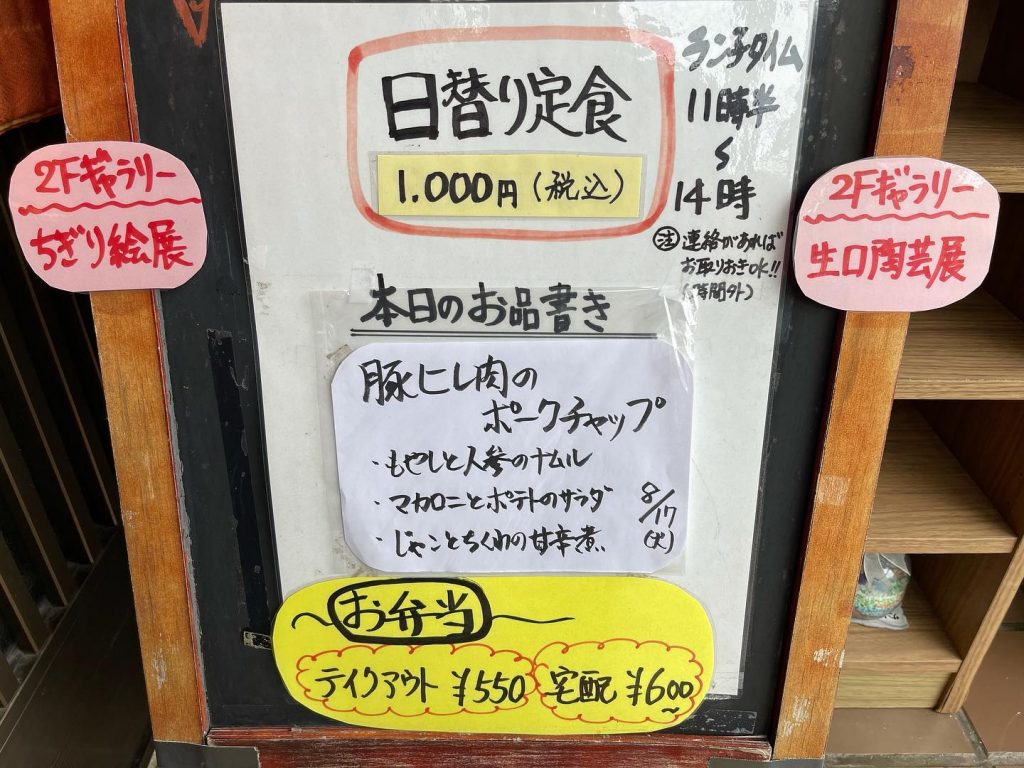 日替り定食
1.000円(税込)
ランチタイム
11時半
〜
14時
㊟連絡があれば
お取りおきOK!!
(時間外)
2Fギャラリー
ちぎり絵展
2Fギャラリー
生口陶芸展
本日のお品書き
豚ヒレ肉の
ポークチャップ
・もやしと人参のナムル
・マカロニとポテトのサラダ
・じゃことちくわの甘辛煮
8/17
(火)
お弁当
テイクアウト ¥550
宅配 ¥600